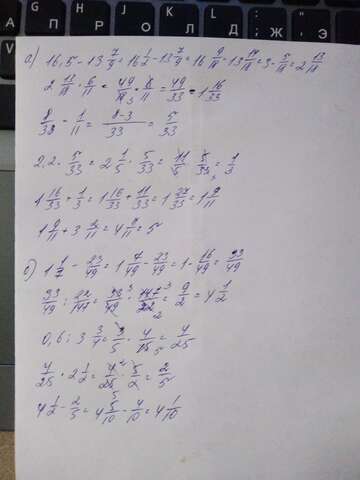 а) 16,5 - 13 7/9 = 16 1/2 - 13 7/9 = 16 9/18 - 13 14/18 = 3 - 5/18 = 2 13/18
2 13/18 · 6/11 = 49/18 · 6/11 = 49/33 = 1 16/33
8/33 - 1/11 = 8-3/33 = 5/33
2,2 · 5/33 = 2 1/5 · 5/33 = 11/5 · 5/33 = 1/3
1 16/33 + 1/3 = 1 16/33 + 11/33 = 1 27/33 = 1 9/11
1 9/11 + 3 2/11 = 4 11/11 = 5
б) 1 1/7 - 23/49 = 1 7/49 - 23/49 = 1 - 16/49 = 33/49
33/49 : 22/147 = 33/49 · 147/22 = 9/2 = 4 1/2
0,6 : 3 3/4 = 3/5 · 4/15 = 4/25
4/25 · 2 1/2 = 4/25 · 5/2 = 2/5
4 1/2 - 2/5 = 4 5/10 - 4/10 = 4 1/10